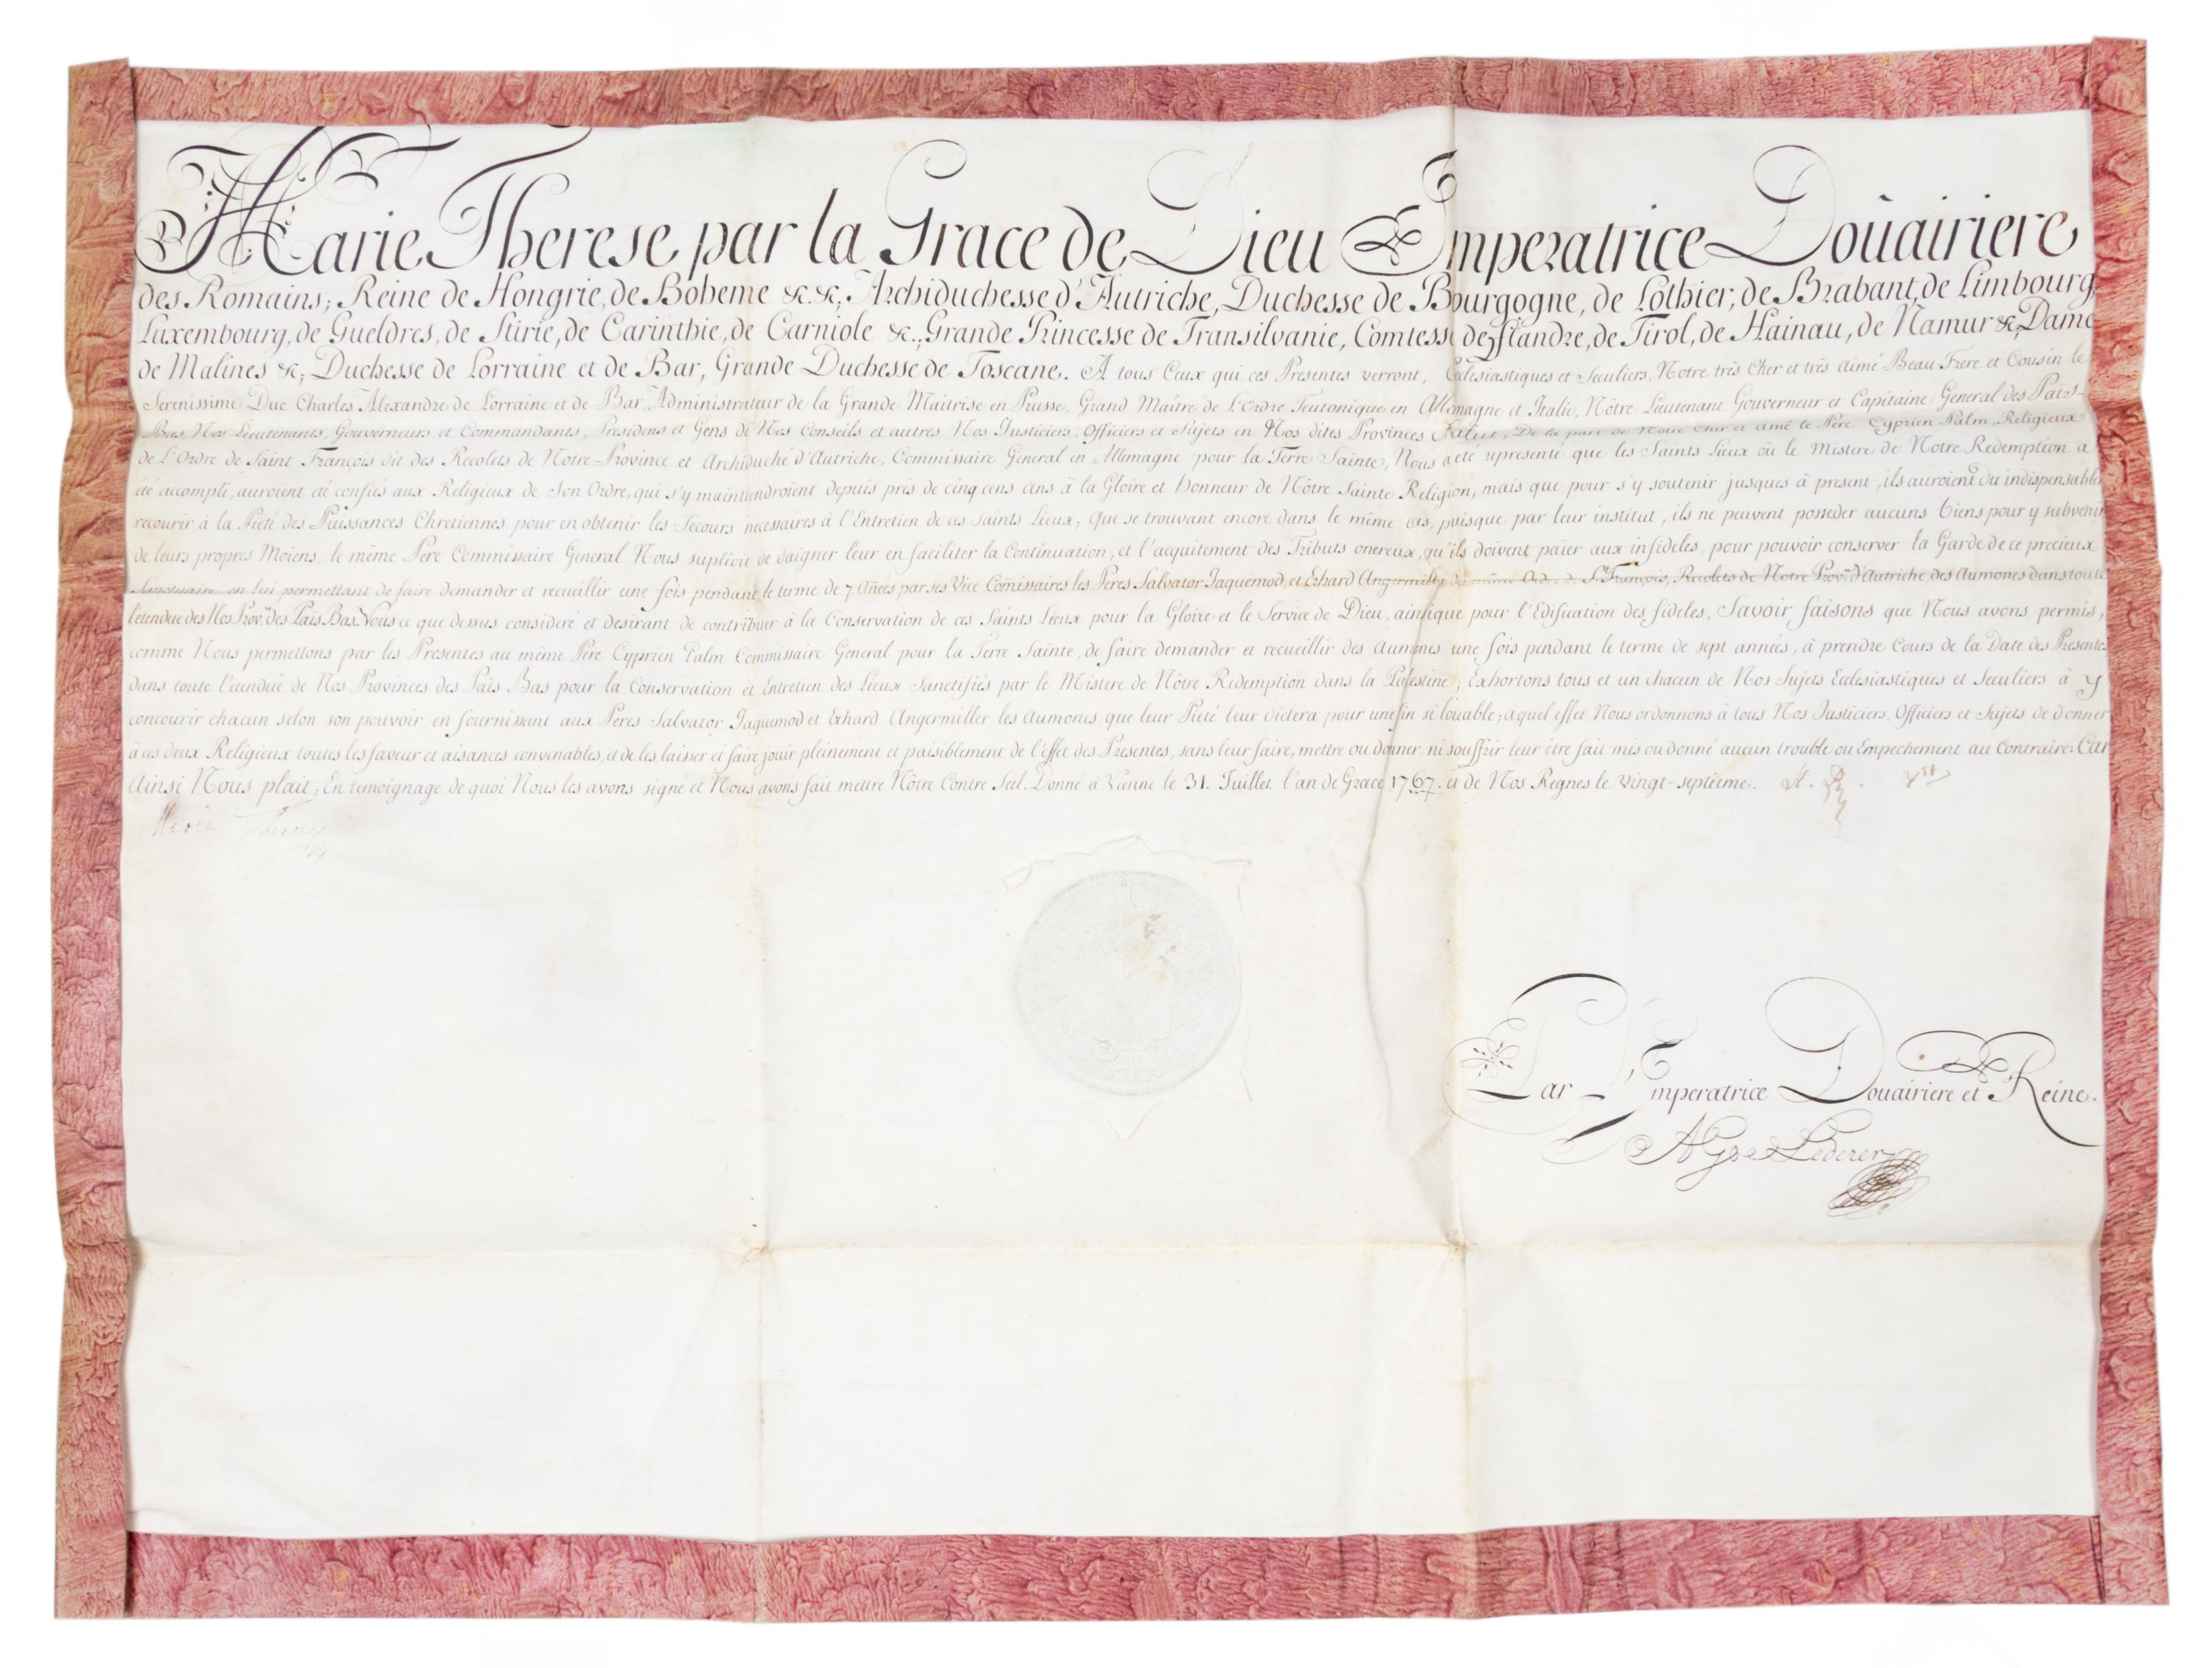 Marie Therese par la Grace de Dieu Imperatrice Doûairiere
des Romains; Reine de Hongrie, de Boheme &c. &c; Archiduchesse d'Autriche, Duchesse de Bourgogne, de Lothier, de Brabant, de Limbourg,
Luxembourg, de Gueldres, de Stirie, de Carinthie, de Carniole &c., Grande Princesse de Transilvanie, Comtesse de Flandre, de Tirol, de Hainau, de Namur &c, Dame
de Malines &c, Duchesse de Lorraine et de Bar, Grande Duchesse de Toscane. A tous Ceux qui ces Presentes verront, Eclesiastiques et Seculiers, Notre très Cher et très Aimé Beau-Frere et Cousin le
Serenissime Duc Charles Alexandre de Lorraine et de Bar, Administrateur de la Grande Maitrise en Prusse, Grand Maître de L'Ordre Teutonique en Allemagne et Italie, Nôtre Lieutenant Gouverneur et Capitaine General des Païs-
Bas, Nos Lieutenants, Gouverneurs et Commandants, Presidens et Gens de Nos Conseils et autres Nos Justiciers, Officiers et Sujets en Nos dites Provinces Salut, De la part de Notre Cher et amé le Père Cyprien Palm, Religieux
de L'Ordre de Saint François dit des Recolets de Notre Province et Archiduché d'Autriche, Commissaire General en Allemagne pour la Terre Sainte, Nous a été representé que les Saints Lieux où le Mistere de Notre Redemption a
été accompli, auroient été confiés aux Religieux de Son Ordre, qui s'y maintiendroient depuis près de cinq cens ans à la Gloire et Honneur de Nôtre Sainte Religion, mais que pour s'y soutenir jusques à present, ils auroient du indispensable
recourir à la Pieté des Puissances Chretiennes pour en obtenir les Secours necessaires à l'Entretien de ces saints Lieux; Que se trouvant encore dans le même cas, puisque par leur institut, ils ne peuvent posseder aucuns biens pour y subvenir
de leurs propres Moiens, le même Père Commissaire General Nous suplioit de daigner leur en faciliter la Continuation, et l'acquitement des Tributs onereux, qu'ils doivent païer aux infideles, pour pouvoir conserver la Garde de ce precieux
Sanctuaire en lui permettant de faire demander et recueillir une fois pendant le terme de 7. Añées par ses Vice Comissaires les Peres Salvator Jaquemod, et Erhard Angermiller du même Ordre de St. François, Recolets de Notre Prov. d'Autriche, des Aumones dans toute
l'etendue des Nos Prov. des Païs Bas. Nous ce que dessus consideré et desirant de contribuer à la Conservation de ces Saints Lieux pour la Gloire et le Service de Dieu, ainsique pour l'Edification des fideles, Savoir faisons que Nous avons permis,
comme Nous permettons par les Presentes au même Père Cyprien Palm Commissaire General pour la Terre Sainte, de faire demander et recueillir des Aumones une fois pendant le terme de sept années, à prendre Cours de la Date des Presentes
dans toute l'étendüe de Nos Provinces des Païs Bas pour la Conservation et Entretien des Lieux Sanctifiés par le Mistere de Nôtre Redemption dans la Palestine; Exhortons tous et un chacun de Nos Sujets Ecclesiastiques et Seculiers à y
concourir chacun selon son pouvoir en fournissant aux Peres Salvator Jaquemod et Erhard Angermiller les Aumones, que leur Pieté leur dictera pour une fin si louable; à quel effet Nous ordonnons à tous Nos Justiciers, Officiers et Sujets de donner
à ces deux Religieux toutes les faveur et aisances convenables, et de les laisser et faire jouir pleinement et paisiblement de l'effet des Presentes, sans leur faire, mettre ou donner, ni souffrir leur être fait mis ou donné aucun trouble ou Empechement au Contraire: Car
Ainsi Nous plait; En temoignage de quoi Nous les avons signé et Nous avons fait mettre Nôtre Contre Séel. Donné à Vienne le 31. Juillet l'an de Grace 1767. et de Nos Regnes le vingt-septieme.
Marie Therese
Par L'Imperatrice Douairiere et Reine.
Lederer